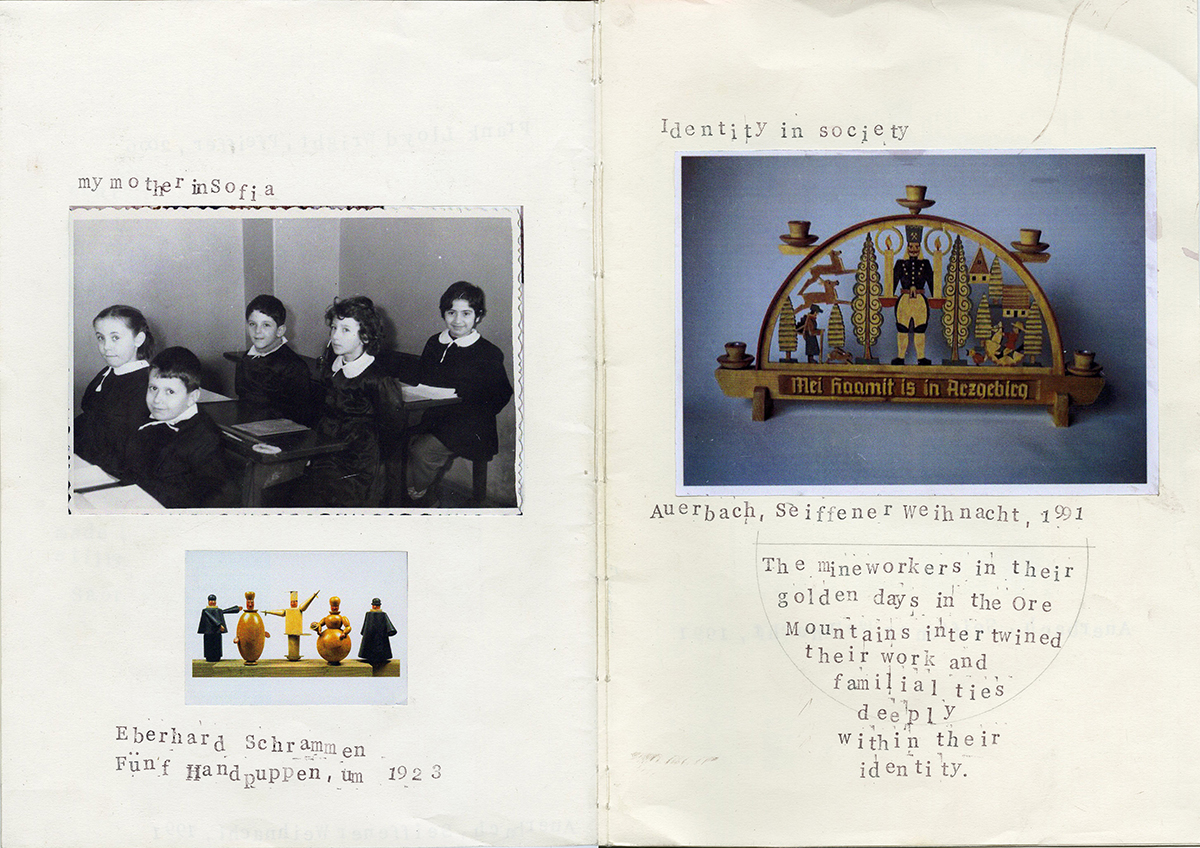 my mother in Sofia
Eberhard Schrammen
Fünf Handpuppen, um 1923
Identity in society
Mei Haamit is in Arzgebirg
Auerbach, Seiffener Weihnacht, 1991
The mineworkers in their
golden days in the Ore
Mountains intertwined
their work and
familial ties
deeply
within their
identity.